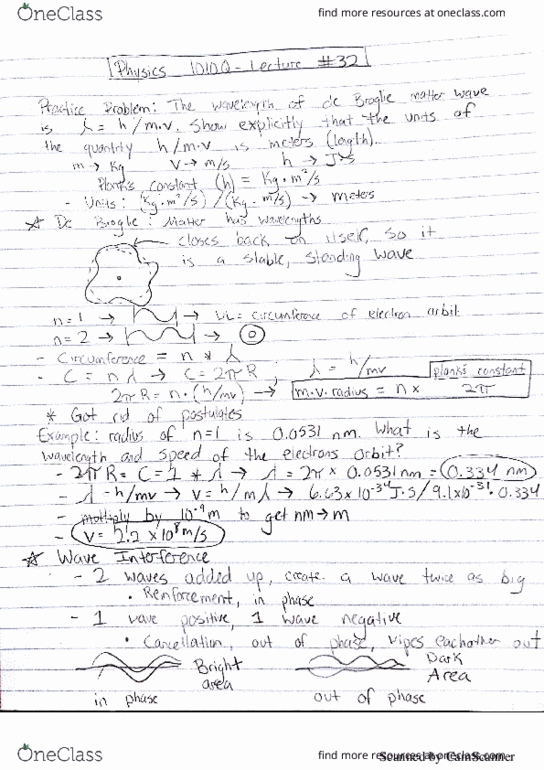 OneClass
find more resources at oneclass.com
Physics 1010Q - Lecture #32
Practice Problem: The wavelength of de Broglie matter wave
is λ = h/m.v. Show explicitly that the units of
the quantity h/m.v is meters (length).
m → Kg V → m/s h → J·s
Plank's constant (h) = Kg·m²/s
- Units: (Kg·m²/s) / (Kg·m/s) → meters
☆ De Broglie: Matter has wavelengths
closes back on itself, so it
is a stable, standing wave
n=1 → → WL = circumference of electron orbit
n=2 → →
- Circumference = n * λ
- C = nλ → C = 2πR, λ = h/mv
planks constant
2πR = n·(h/mv) → m.v.radius = n × 2π
* Got rid of postulates
Example: radius of n=1 is 0.0531 nm. What is the
wavelength and speed of the electrons orbit?
- 2πR = C = 1 * λ → λ = 2π × 0.0531nm = 0.334 nm
- λ = h/mv → v = h/mλ → 6.63×10⁻³⁴ J·s / 9.1×10⁻³¹ · 0.334
- multiply by 10⁻⁹m to get nm → m
- V = 2.2 × 10⁸ m/s
☆ Wave Interference
- 2 waves added up, create a wave twice as big
• Reinforcement, in phase
- 1 wave positive, 1 wave negative
• Cancellation, out of phase, wipes eachother out
Bright area
Dark Area
in phase
out of phase
OneClass
find more resources at oneclass.com
Scanned by CamScanner